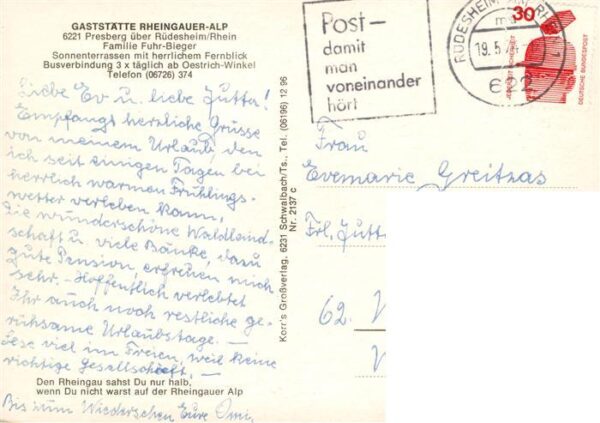 GASTSTÄTTE RHEINGAUER-ALP
6221 Presberg über Rüdesheim/Rhein
Familie Fuhr-Bieger
Sonnenterrassen mit herrlichem Fernblick
Busverbindung 3 x täglich ab Oestrich-Winkel
Telefon (06726) 374
Liebe Ev u. liebe Jutta!
Empfangt herzliche Grüsse
von meinem Urlaub, den
ich seit einigen Tagen bei
herrlich warmen Frühlings-
wetter verleben kann.
Die wunderschöne Waldland-
schaft u. viele Bänke, dazu
gute Pension, erfreuen mich
sehr. - Hoffentlich verlebtet
Ihr auch noch restliche ge-
ruhsame Urlaubstage. —
Lese viel im Freien, weil keine
richtige Gesellschaft. —
Den Rheingau sahst Du nur halb,
wenn Du nicht warst auf der Rheingauer Alp
Bis zum Wiedersehen Eure Omi
Korr's Großverlag, 6231 Schwalbach/Ts., Tel. (06196) 12 96
Nr. 2137 c
Post–
damit
man
voneinander
hört
RÜDESHEIM AM RHEIN
19.5.
622
30
JEDERZEIT SICHERHEIT
DEUTSCHE BUNDESPOST
Frau
Evemarie Greitzas
Frl. Jutta
62.